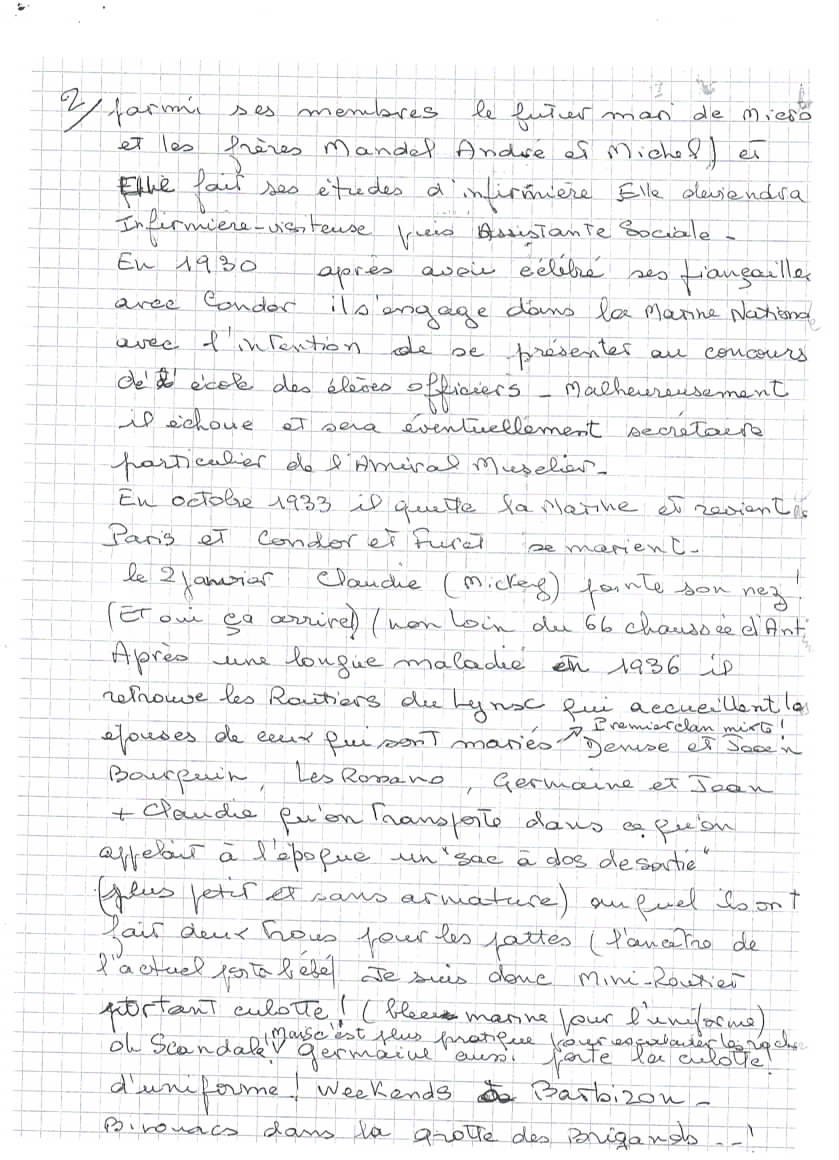 2/ parmi ses membres le futur mari de Micro
et les frères Mandel André et Michel) et
Elle fait ses études d'infirmière Elle deviendra
Infirmière-visiteuse puis Assistante Sociale -
En 1930 après avoir célébré ses fiançailles
avec Condor il s'engage dans la Marine Nationale
avec l'intention de se présenter au concours
de l'école des élèves officiers - Malheureusement
il échoue et sera éventuellement secrétaire
particulier de l'Amiral Muselier -
En octobre 1933 il quitte la Marine et revient à
Paris et Condor et Furet se marient -
le 2 janvier Claudie (Mickey) pointe son nez !
(Et oui ça arrive!) (non loin du 66 chaussée d'Ant.
Après une longue maladie en 1936 il
retrouve les Routiers du Lynx qui accueillent les
épouses de ceux qui sont mariés ↗ Premier clan mixte !
Denise et
Bourquin, Les Romano, Germaine et Jean
+ Claudie qu'on transporte dans ce qu'on
appelait à l'époque un "sac à dos de sortie"
(plus petit et sans armature) auquel ils ont
fait deux trous pour les pattes (l'ancêtre de
l'actuel porte bébé) Je suis donc Mini-Routier
portant culotte ! (bleu marine pour l'uniforme)
oh Scandale ! Mais c'est plus pratique pour escalader les rochers
Germaine aussi porte la culotte
d'uniforme ! Weekends Barbizon -
Bivouacs dans la grotte des Brigands - - !